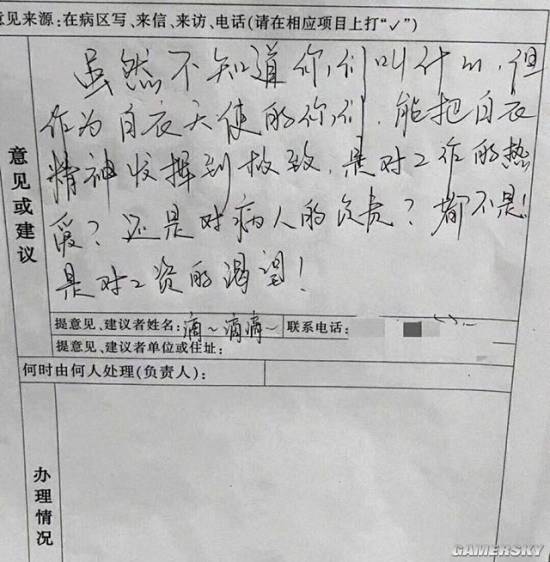 意见来源：在病区写、来信、来访、电话（请在相应项目上打“✓”）
意见或建议
虽然不知道你们叫什么，但
作为白衣天使的你们，能把白衣
精神发挥到极致，是对工作的热
爱？还是对病人的负责？都不是！
是对工资的渴望！
提意见、建议者姓名：滴～滴滴～ 联系电话：
提意见、建议者单位或住址：
何时由何人处理（负责人）：
办理情况
GAMERSKY